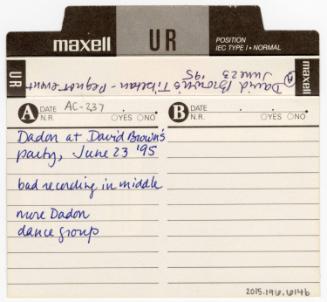 maxell
UR
POSITION
IEC TYPE I • NORMAL
UR
maxell
A David Brown's Tibetan - Request event
June 23 '95
A DATE AC-237
N.R. YES NO
B DATE
N.R. YES NO
Dadon at David Brown's
party, June 23 '95
bad recording in middle
more Dadon
dance group
2015.196.6146